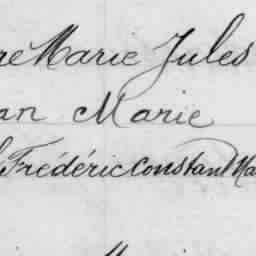 Marie Jules
Marie
Frédéric Constant